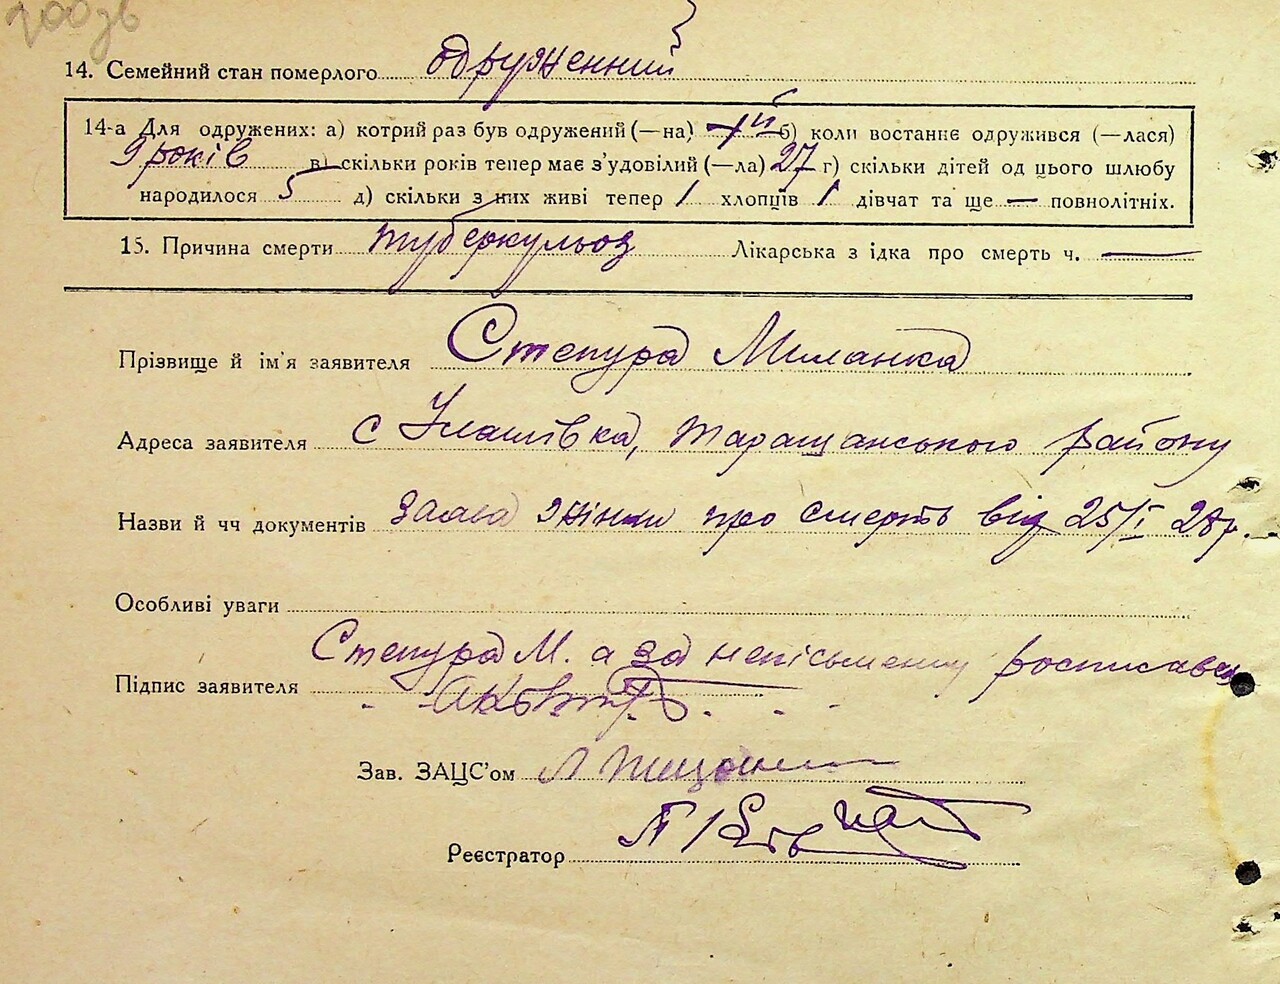 200зв
14. Семейний стан померлого одруженний
14-а Для одружених: а) котрий раз був одружений (—на) 1й б) коли востаннє одружився (—лася)
9 років в) скільки років тепер має з’удовілий (—ла) 27 г) скільки дітей од цього шлюбу
народилося 5 д) скільки з них живі тепер 1 хлопців 1 дівчат та ще — повнолітніх.
15. Причина смерти туберкульоз Лікарська з ідка про смерть ч. —
Прізвище й ім’я заявителя Степура Миланка
Адреса заявителя с Улашівка, Таращанського району
Назви й чч документів заява жінки про смерть від 25/I 28р.
Особливі уваги
Степура М. а за неписьмену росписався
Підпис заявителя
Зав. ЗАЦС’ом
Реєстратор